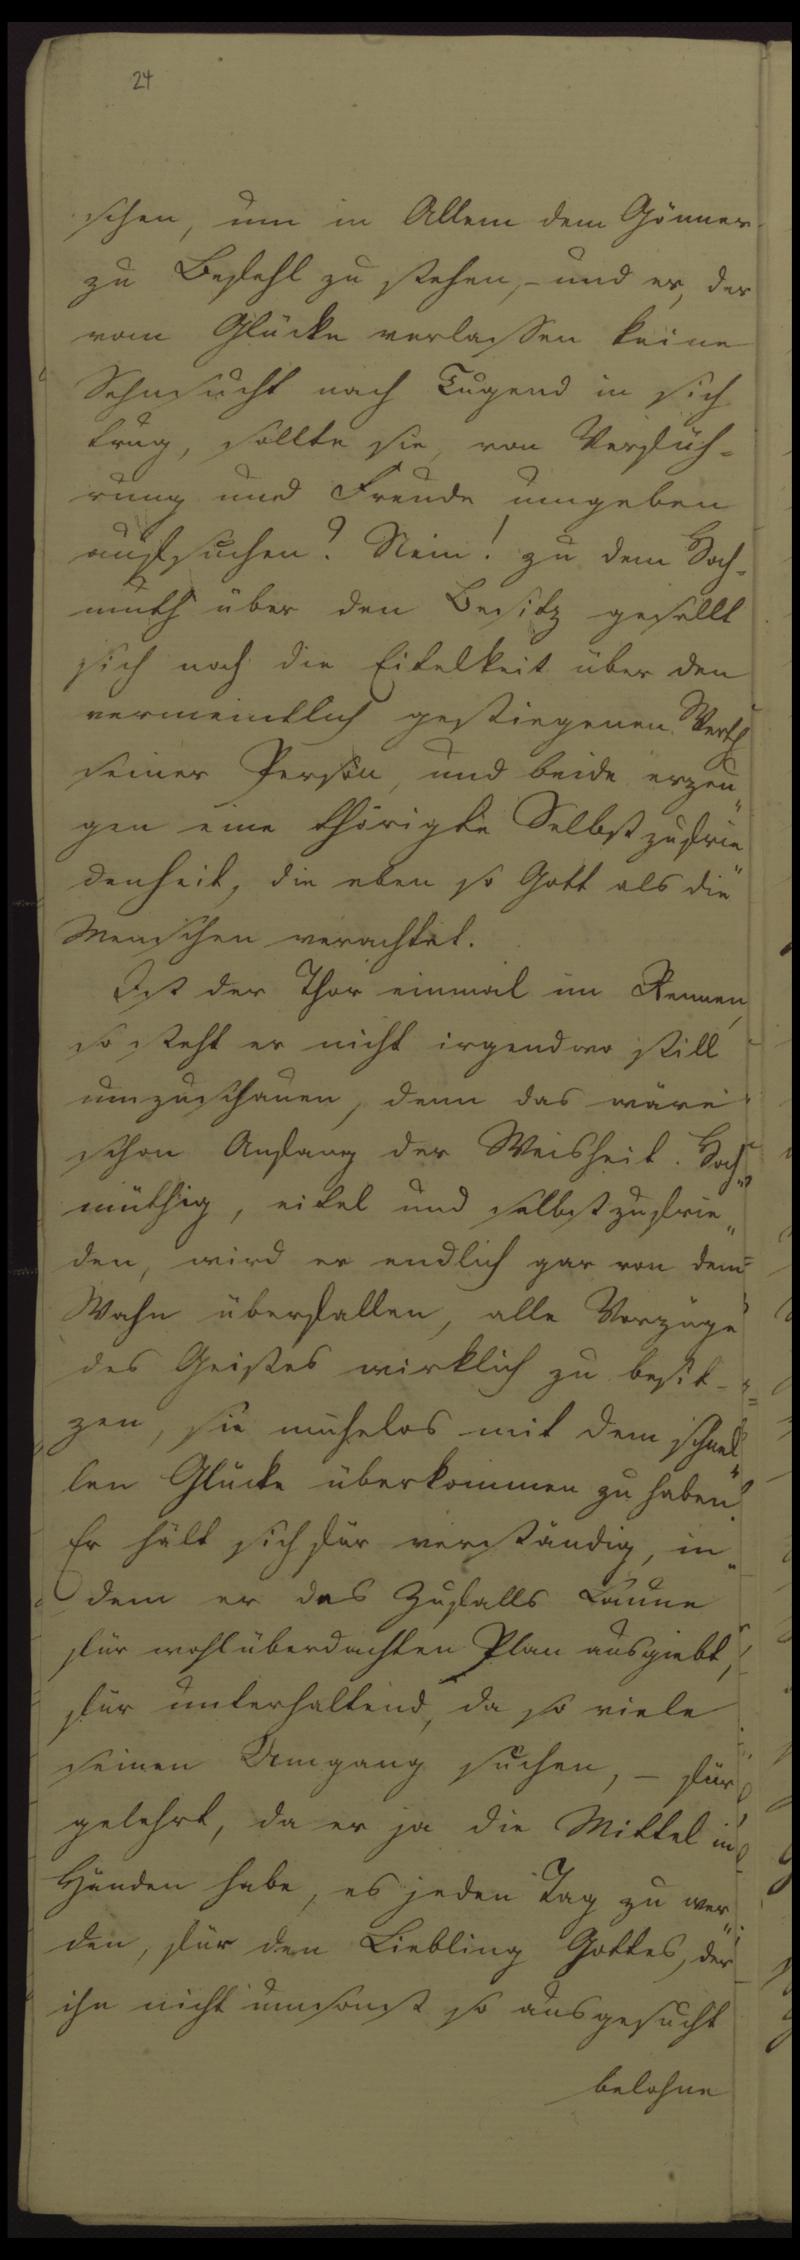 24
schen, um in Allem dem Gönner
zu Befehl zu stehen, – und er, der
vom Glücke verlassen keine
Sehnsucht nach Tugend in sich
trug, sollte sie, von Verfüh-
rung und Freude umgeben
aufsuchen? Nein! zu dem Hoch-
muth über den Besitz gesellt
sich noch die Eitelkeit über den
vermeintlich gestiegenen Werth
seiner Person, und beide erzeu-
gen eine thörigte Selbstzufrie-
denheit, die eben so Gott als die
Menschen verachtet.
Ist der Thor einmal im Rennen,
so steht er nicht irgendwo still
umzuschauen, denn das wäre
schon Anfang der Weisheit. Hoch-
müthig, eitel und selbstzufrie-
den, wird er endlich gar von dem
Wahn überfallen, alle Vorzüge
des Geistes wirklich zu besit-
zen, sie mühelos mit dem schnel-
len Glücke überkommen zu haben.
Er hält sich für verständig, in-
dem er des Zufalls Laune
für wohlüberdachten Plan ausgiebt,
für unterhaltend, da so viele
seinen Umgang suchen, – für
gelehrt, da er ja die Mittel in
Händen habe, es jeden Tag zu wer-
den, für den Liebling Gottes, der
ihn nicht umsonst so ausgesucht
belohne